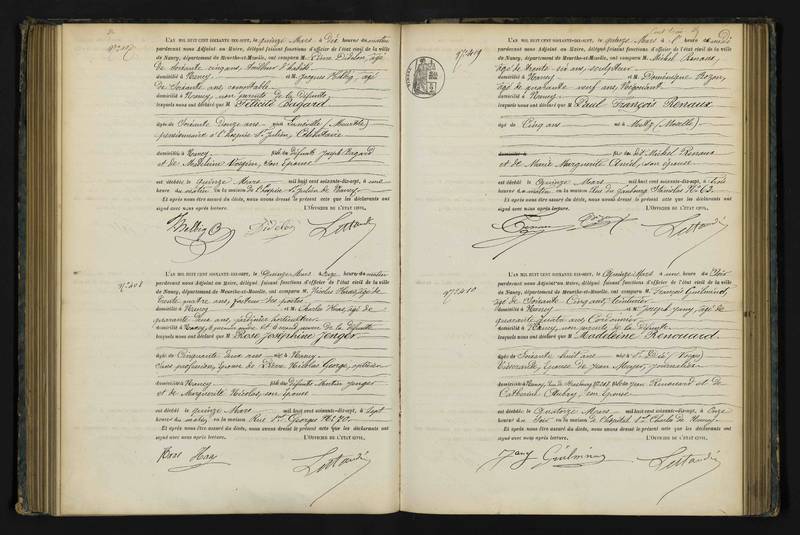 N° 407
L'AN MIL HUIT CENT SOIXANTE-DIX-SEPT, le quinze Mars à dix heures du matin
pardevant nous Adjoint au Maire, délégué faisant fonctions d'officier de l'état civil de la ville
de Nancy, département de Meurthe-et-Moselle, ont comparu M. Didelon, âgé
de Soixante cinq ans,
domicilié à Nancy et M. Jacques Helbig, âgé
de Soixante ans, comptable
domicilié à Nancy, non parents de la défunte
lesquels nous ont déclaré que M Félicité Bugard
âgée de Soixante Douze ans née à Lunéville (Meurthe)
pensionnaire à l'hospice St Julien, Célibataire
domiciliée à Nancy fille de Défunts Joseph Bugard
et de Madeleine Vosgien, son épouse
est décédée le quinze Mars mil huit cent soixante-dix-sept, à une
heure du matin en la maison de l'hospice St Julien de Nancy
Et après nous être assuré du décès, nous avons dressé le présent acte que les déclarants ont
signé avec nous après lecture. L'OFFICIER DE L'ÉTAT CIVIL,
Helbig Didelon
N° 408
L'AN MIL HUIT CENT SOIXANTE-DIX-SEPT, le quinze Mars à onze heures du matin
pardevant nous Adjoint au Maire, délégué faisant fonctions d'officier de l'état civil de la ville
de Nancy, département de Meurthe-et-Moselle, ont comparu M. Nicolas âgé de
trente quatre ans, facteur des postes
domicilié à Nancy et M. Charles Haas, âgé de
quarante deux ans, jardinier
domicilié à Nancy, de la défunte
lesquels nous ont déclaré que M Rose Joséphine Jenger
âgée de Cinquante deux ans née à Nancy
sans profession, épouse de Pierre Nicolas George,
domiciliée à Nancy fille de Défunts Martin Jenger
et de Marguerite Nicolas, son épouse
est décédée le quinze Mars mil huit cent soixante-dix-sept, à sept
heures du matin en la maison Rue St Georges N° 70.
Et après nous être assuré du décès, nous avons dressé le présent acte que les déclarants ont
signé avec nous après lecture. L'OFFICIER DE L'ÉTAT CIVIL,
Haas
N° 409
L'AN MIL HUIT CENT SOIXANTE-DIX-SEPT, le quinze Mars à
pardevant nous Adjoint au Maire, délégué faisant fonctions d'officier de l'état civil de la ville
de Nancy, département de Meurthe-et-Moselle, ont comparu M. Michel Renaux,
âgé de trente six ans, sculpteur
domicilié à Nancy et M. Dominique Rozon,
âgé de quarante neuf ans, Négociant
domicilié à Nancy
lesquels nous ont déclaré que M Paul François Renaux
âgé de Cinq ans né à Metz (Moselle)
domicilié à fils de dit Michel Renaux
et de Marie Marguerite son épouse
est décédé le Quinze Mars mil huit cent soixante-dix-sept, à trois
heures du matin en la maison Rue du faubourg Stanislas N° 63.
Et après nous être assuré du décès, nous avons dressé le présent acte que les déclarants ont
signé avec nous après lecture. L'OFFICIER DE L'ÉTAT CIVIL,
N° 410
L'AN MIL HUIT CENT SOIXANTE-DIX-SEPT, le Quinze Mars à une heure du Soir
pardevant nous Adjoint au Maire, délégué faisant fonctions d'officier de l'état civil de la ville
de Nancy, département de Meurthe-et-Moselle, ont comparu M. François Guilminot,
âgé de Soixante Cinq ans,
domicilié à Nancy et M. Joseph Jany, âgé de
quarante ans, Cordonnier
domicilié à Nancy, non parents de la défunte
lesquels nous ont déclaré que M Madeleine Renouard
âgée de Soixante huit ans née à St Dié (Vosges)
épouse de Jean Moyen, journalier
domiciliée à Nancy, Rue de Strasbourg N° 168 fille de Jean Renouard et de
Catherine son épouse
est décédée le Quatorze Mars mil huit cent soixante-dix-sept, à Onze
heures du Soir en la maison de l'hôpital St Charles de Nancy
Et après nous être assuré du décès, nous avons dressé le présent acte que les déclarants ont
signé avec nous après lecture. L'OFFICIER DE L'ÉTAT CIVIL,
Jany Guilminot